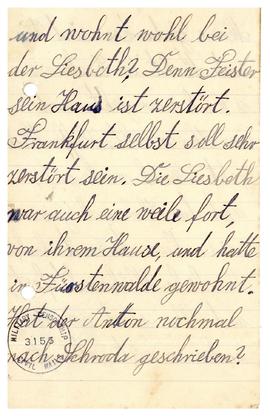 und wohnt wohl bei
der Liesbeth? Denn Feister
sein Haus ist zerstört.
Frankfurt selbst soll sehr
zerstört sein. Die Liesbeth
war auch eine weile fort,
von ihrem Hause, und hatte
in Fürstenwalde gewohnt.
Hat der Anton nochmal
nach Schroda geschrieben?
MILITARY CENSORSHIP
3155
CIVIL MAILS